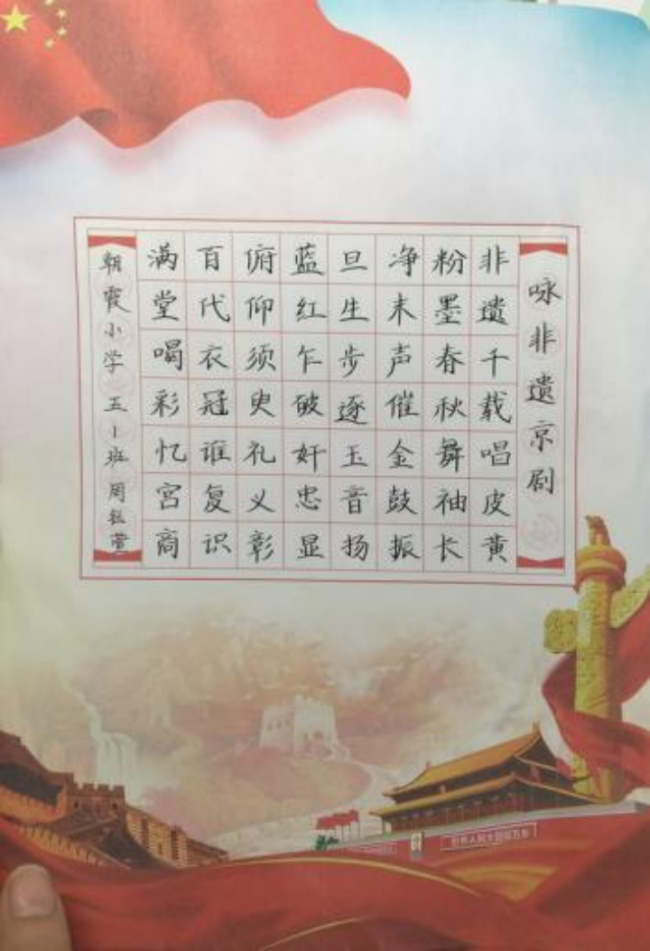 咏非遗京剧
非遗千载唱皮黄
粉墨春秋舞袖长
净末声催金鼓振
旦生步逐玉音扬
蓝红乍破奸忠显
俯仰须臾礼义彰
百代衣冠谁复识
满堂喝彩忆宫商
朝霞小学 五1班 周钰萱